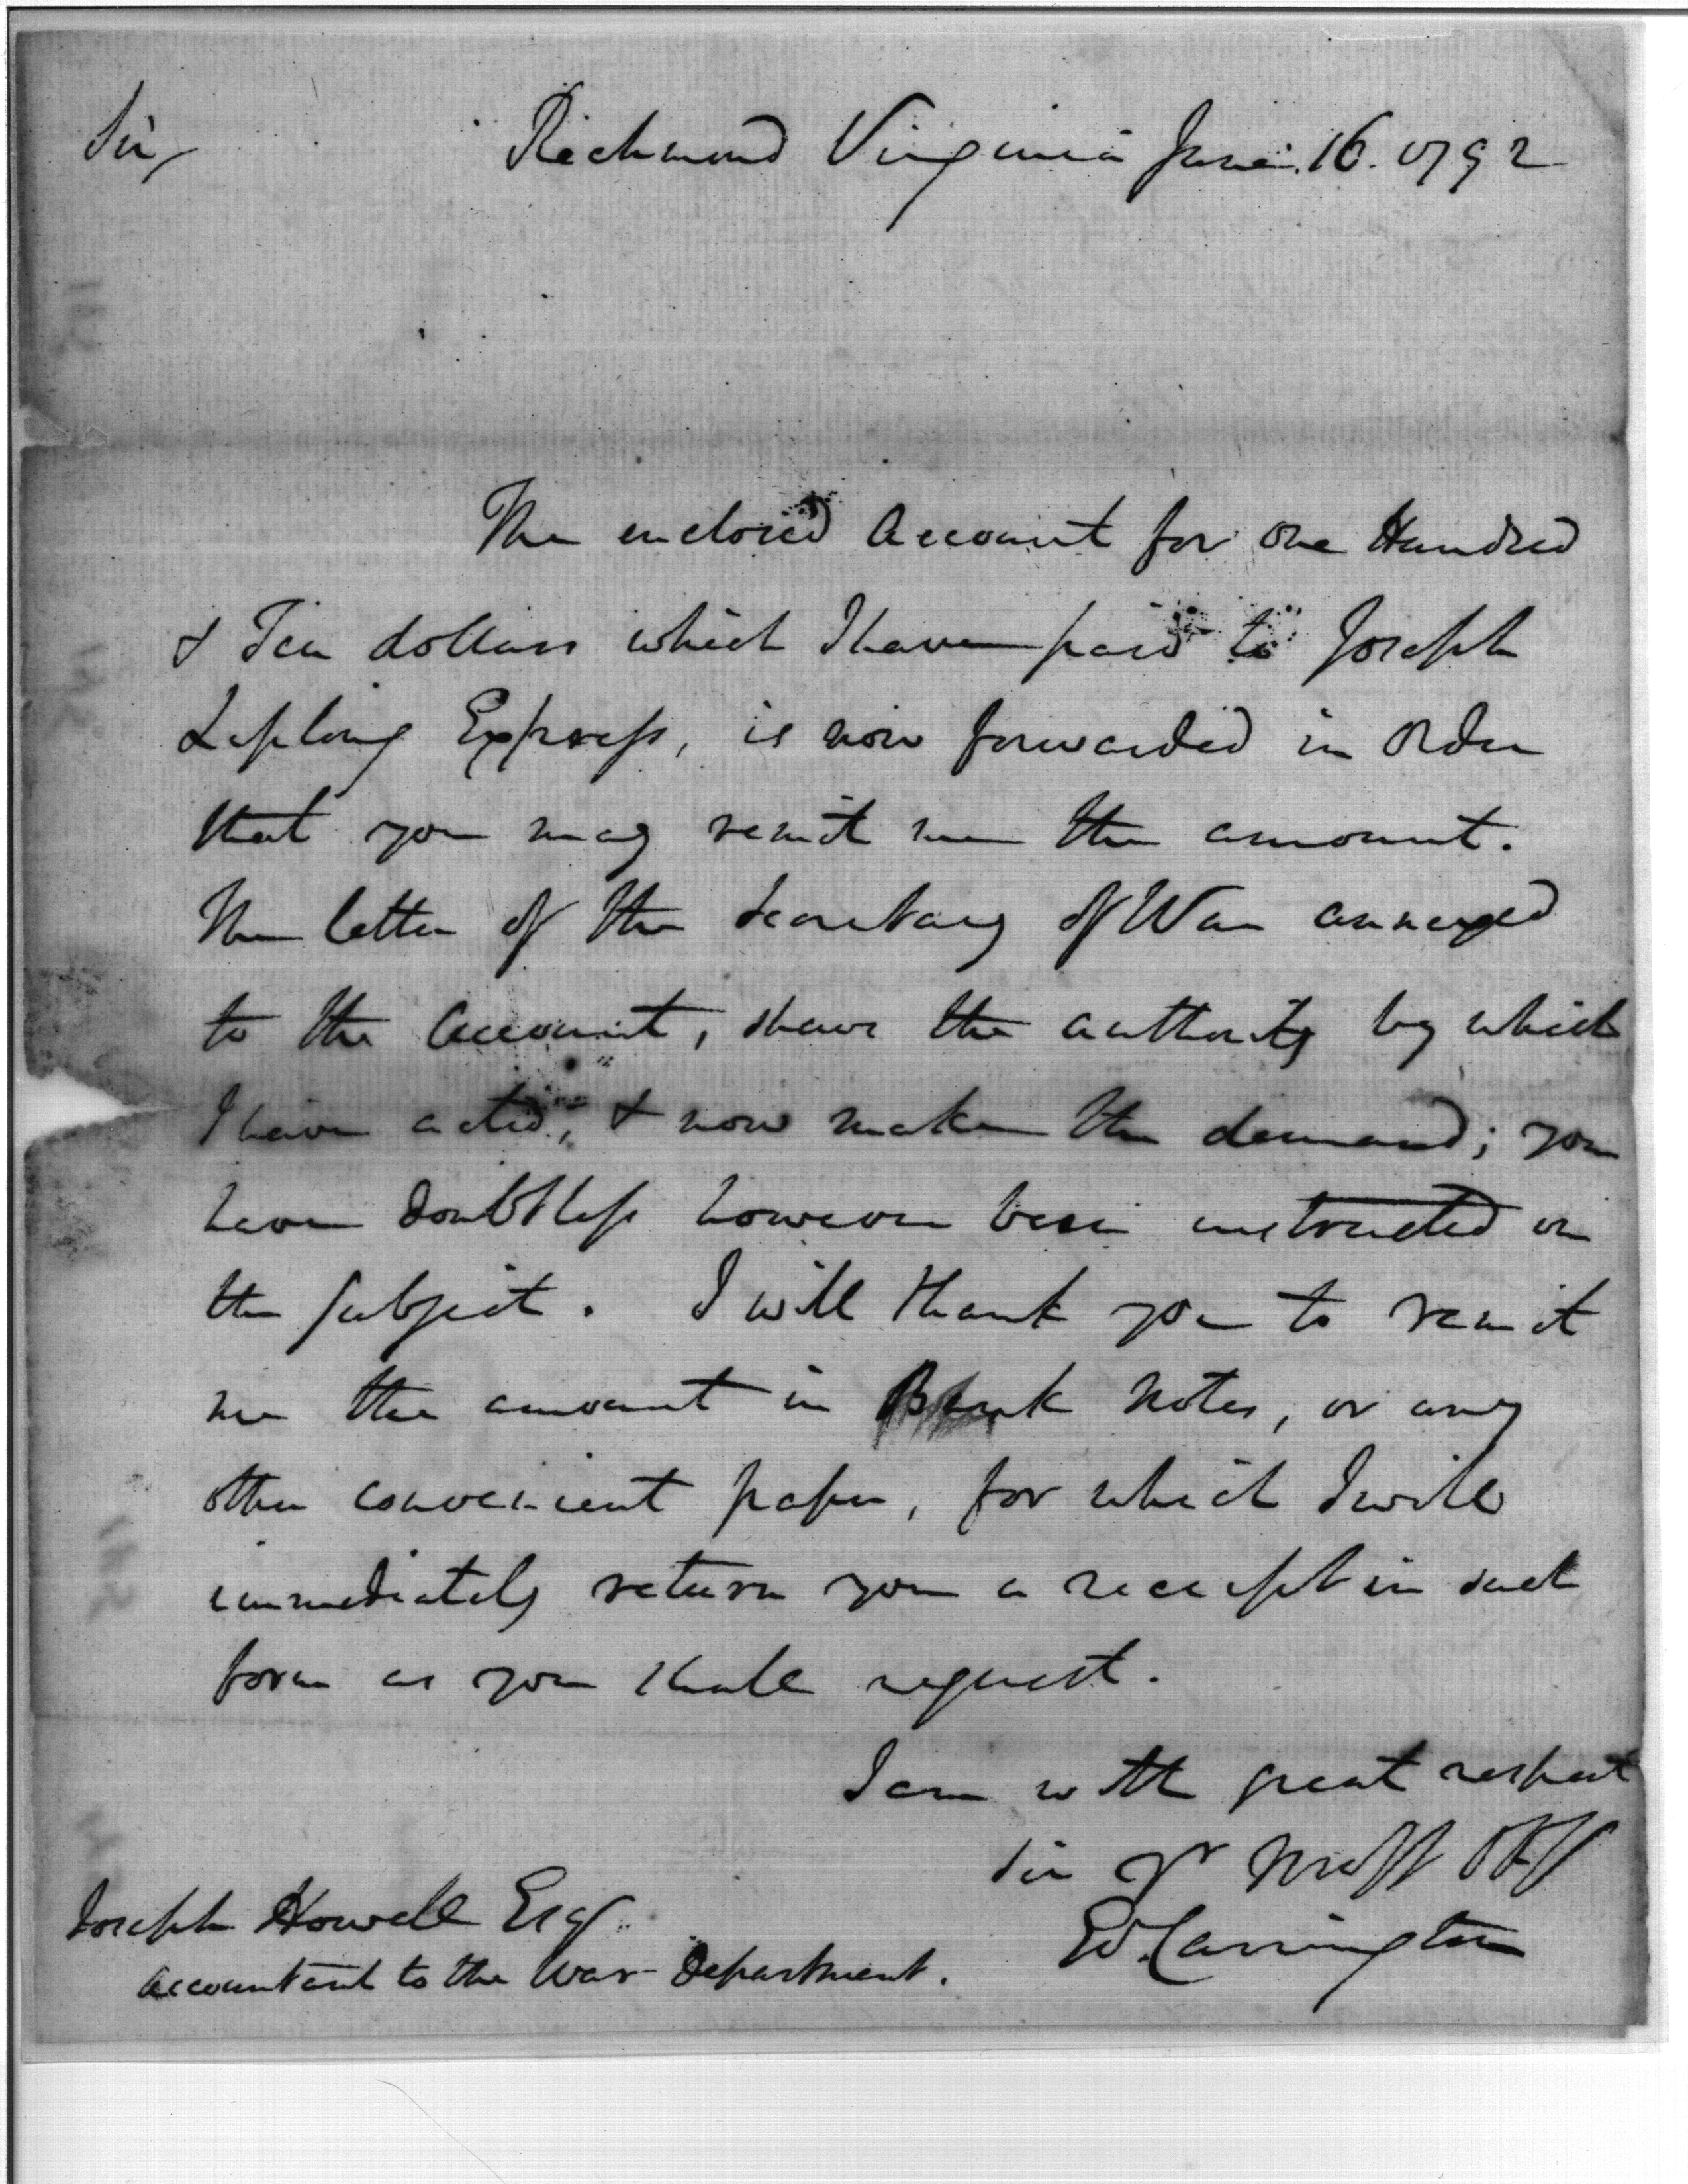 Sir,
Richmond Virginia June 16. 1792
The enclosed Account for One Hundred
& Ten dollars which I have paid to Joseph
Express, is now forwarded in Order
that you may remit me the amount.
The letter of the Secretary of War annexed
to the Account, shews the authority by which
I have acted, & now make the demand; you
have doubtless however been instructed on
the subject. I will thank you to remit
me the amount in Bank Notes, or any
other convenient paper, for which I will
immediately return you a receipt in such
form as you shall request.
I am with great respect
Sir Yr Most Ob
Ed. Carrington
Joseph Howell Esq
Accountant to the War Department.